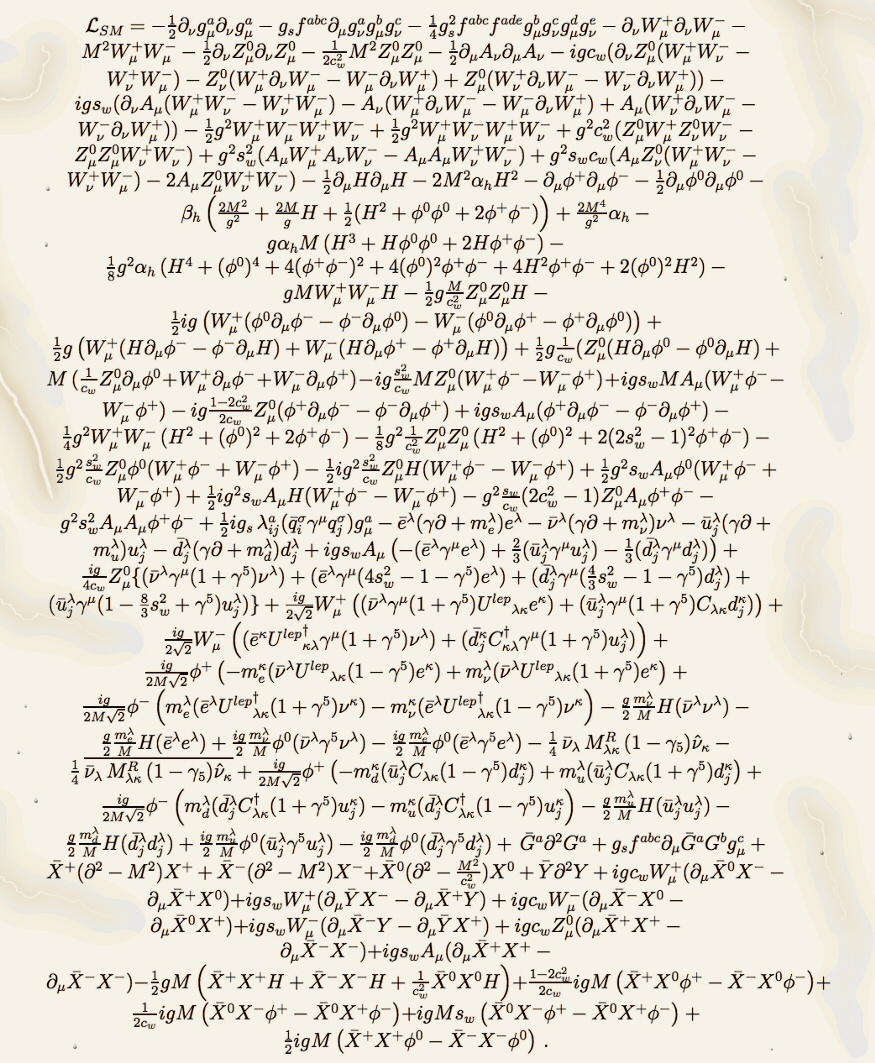 $\mathcal{L}_{SM} = -\frac{1}{2}\partial_\nu g^a_\mu \partial_\nu g^a_\mu - g_s f^{abc}\partial_\mu g^a_\nu g^b_\mu g^c_\nu - \frac{1}{4}g^2_s f^{abc}f^{ade}g^b_\mu g^c_\nu g^d_\mu g^e_\nu - \partial_\nu W^+_\mu \partial_\nu W^-_\mu -$
$M^2 W^+_\mu W^-_\mu - \frac{1}{2}\partial_\nu Z^0_\mu \partial_\nu Z^0_\mu - \frac{1}{2c^2_w}M^2 Z^0_\mu Z^0_\mu - \frac{1}{2}\partial_\mu A_\nu \partial_\mu A_\nu - igc_w(\partial_\nu Z^0_\mu(W^+_\mu W^-_\nu -$
$W^+_\nu W^-_\mu) - Z^0_\nu(W^+_\mu \partial_\nu W^-_\mu - W^-_\mu \partial_\nu W^+_\mu) + Z^0_\mu(W^+_\nu \partial_\nu W^-_\mu - W^-_\nu \partial_\nu W^+_\mu)) -$
$igs_w(\partial_\nu A_\mu(W^+_\mu W^-_\nu - W^+_\nu W^-_\mu) - A_\nu(W^+_\mu \partial_\nu W^-_\mu - W^-_\mu \partial_\nu W^+_\mu) + A_\mu(W^+_\nu \partial_\nu W^-_\mu -$
$W^-_\nu \partial_\nu W^+_\mu)) - \frac{1}{2}g^2 W^+_\mu W^-_\mu W^+_\nu W^-_\nu + \frac{1}{2}g^2 W^+_\mu W^-_\nu W^+_\mu W^-_\nu + g^2c^2_w(Z^0_\mu W^+_\mu Z^0_\nu W^-_\nu -$
$Z^0_\mu Z^0_\mu W^+_\nu W^-_\nu) + g^2s^2_w(A_\mu W^+_\mu A_\nu W^-_\nu - A_\mu A_\mu W^+_\nu W^-_\nu) + g^2s_wc_w(A_\mu Z^0_\nu(W^+_\mu W^-_\nu -$
$W^+_\nu W^-_\mu) - 2A_\mu Z^0_\mu W^+_\nu W^-_\nu) - \frac{1}{2}\partial_\mu H\partial_\mu H - 2M^2\alpha_h H^2 - \partial_\mu \phi^+ \partial_\mu \phi^- - \frac{1}{2}\partial_\mu \phi^0 \partial_\mu \phi^0 -$
$\beta_h\left(\frac{2M^2}{g^2} + \frac{2M}{g}H + \frac{1}{2}(H^2 + \phi^0\phi^0 + 2\phi^+\phi^-)\right) + \frac{2M^4}{g^2}\alpha_h -$
$g\alpha_h M(H^3 + H\phi^0\phi^0 + 2H\phi^+\phi^-) -$
$\frac{1}{8}g^2\alpha_h(H^4 + (\phi^0)^4 + 4(\phi^+\phi^-)^2 + 4(\phi^0)^2\phi^+\phi^- + 4H^2\phi^+\phi^- + 2(\phi^0)^2H^2) -$
$gMW^+_\mu W^-_\mu H - \frac{1}{2}g\frac{M}{c^2_w}Z^0_\mu Z^0_\mu H -$
$\frac{1}{2}ig\left(W^+_\mu(\phi^0\partial_\mu\phi^- - \phi^-\partial_\mu\phi^0) - W^-_\mu(\phi^0\partial_\mu\phi^+ - \phi^+\partial_\mu\phi^0)\right) +$
$\frac{1}{2}g\left(W^+_\mu(H\partial_\mu\phi^- - \phi^-\partial_\mu H) + W^-_\mu(H\partial_\mu\phi^+ - \phi^+\partial_\mu H)\right) + \frac{1}{2}g\frac{1}{c_w}(Z^0_\mu(H\partial_\mu\phi^0 - \phi^0\partial_\mu H) +$
$M(\frac{1}{c_w}Z^0_\mu\partial_\mu\phi^0 + W^+_\mu\partial_\mu\phi^- + W^-_\mu\partial_\mu\phi^+) - ig\frac{s^2_w}{c_w}MZ^0_\mu(W^+_\mu\phi^- - W^-_\mu\phi^+) + igs_wMA_\mu(W^+_\mu\phi^- -$
$W^-_\mu\phi^+) - ig\frac{1-2c^2_w}{2c_w}Z^0_\mu(\phi^+\partial_\mu\phi^- - \phi^-\partial_\mu\phi^+) + igs_wA_\mu(\phi^+\partial_\mu\phi^- - \phi^-\partial_\mu\phi^+) -$
$\frac{1}{4}g^2W^+_\mu W^-_\mu(H^2 + (\phi^0)^2 + 2\phi^+\phi^-) - \frac{1}{8}g^2\frac{1}{c^2_w}Z^0_\mu Z^0_\mu(H^2 + (\phi^0)^2 + 2(2s^2_w - 1)^2\phi^+\phi^-) -$
$\frac{1}{2}g^2\frac{s^2_w}{c_w}Z^0_\mu\phi^0(W^+_\mu\phi^- + W^-_\mu\phi^+) - \frac{1}{2}ig^2\frac{s^2_w}{c_w}Z^0_\mu H(W^+_\mu\phi^- - W^-_\mu\phi^+) + \frac{1}{2}g^2s_wA_\mu\phi^0(W^+_\mu\phi^- +$
$W^-_\mu\phi^+) + \frac{1}{2}ig^2s_wA_\mu H(W^+_\mu\phi^- - W^-_\mu\phi^+) - g^2\frac{s_w}{c_w}(2c^2_w - 1)Z^0_\mu A_\mu\phi^+\phi^- -$
$g^2s^2_wA_\mu A_\mu\phi^+\phi^- + \frac{1}{2}ig_s\lambda^a_{ij}(\bar{q}^\sigma_i\gamma^\mu q^\sigma_j)g^a_\mu - \bar{e}^\lambda(\gamma\partial + m^\lambda_e)e^\lambda - \bar{\nu}^\lambda(\gamma\partial + m^\lambda_\nu)\nu^\lambda - \bar{u}^\lambda_j(\gamma\partial +$
$m^\lambda_u)u^\lambda_j - \bar{d}^\lambda_j(\gamma\partial + m^\lambda_d)d^\lambda_j + igs_wA_\mu\left(-(\bar{e}^\lambda\gamma^\mu e^\lambda) + \frac{2}{3}(\bar{u}^\lambda_j\gamma^\mu u^\lambda_j) - \frac{1}{3}(\bar{d}^\lambda_j\gamma^\mu d^\lambda_j)\right) +$
$\frac{ig}{4c_w}Z^0_\mu\{(\bar{\nu}^\lambda\gamma^\mu(1+\gamma^5)\nu^\lambda) + (\bar{e}^\lambda\gamma^\mu(4s^2_w - 1 - \gamma^5)e^\lambda) + (\bar{d}^\lambda_j\gamma^\mu(\frac{4}{3}s^2_w - 1 - \gamma^5)d^\lambda_j) +$
$(\bar{u}^\lambda_j\gamma^\mu(1 - \frac{8}{3}s^2_w + \gamma^5)u^\lambda_j)\} + \frac{ig}{2\sqrt{2}}W^+_\mu\left((\bar{\nu}^\lambda\gamma^\mu(1+\gamma^5)U^{lep}{}_{\lambda\kappa}e^\kappa) + (\bar{u}^\lambda_j\gamma^\mu(1+\gamma^5)C_{\lambda\kappa}d^\kappa_j)\right) +$
$\frac{ig}{2\sqrt{2}}W^-_\mu\left((\bar{e}^\kappa U^{lep\dagger}{}_{\kappa\lambda}\gamma^\mu(1+\gamma^5)\nu^\lambda) + (\bar{d}^\kappa_jC^\dagger_{\kappa\lambda}\gamma^\mu(1+\gamma^5)u^\lambda_j)\right) +$
$\frac{ig}{2M\sqrt{2}}\phi^+\left(-m^\kappa_e(\bar{\nu}^\lambda U^{lep}{}_{\lambda\kappa}(1-\gamma^5)e^\kappa) + m^\lambda_\nu(\bar{\nu}^\lambda U^{lep}{}_{\lambda\kappa}(1+\gamma^5)e^\kappa\right) +$
$\frac{ig}{2M\sqrt{2}}\phi^-\left(m^\lambda_e(\bar{e}^\lambda U^{lep\dagger}{}_{\lambda\kappa}(1+\gamma^5)\nu^\kappa) - m^\kappa_\nu(\bar{e}^\lambda U^{lep\dagger}{}_{\lambda\kappa}(1-\gamma^5)\nu^\kappa\right) - \frac{g}{2}\frac{m^\lambda_\nu}{M}H(\bar{\nu}^\lambda\nu^\lambda) -$
$\frac{g}{2}\frac{m^\lambda_e}{M}H(\bar{e}^\lambda e^\lambda) + \frac{ig}{2}\frac{m^\lambda_\nu}{M}\phi^0(\bar{\nu}^\lambda\gamma^5\nu^\lambda) - \frac{ig}{2}\frac{m^\lambda_e}{M}\phi^0(\bar{e}^\lambda\gamma^5e^\lambda) - \frac{1}{4}\bar{\nu}_\lambda M^R_{\lambda\kappa}(1-\gamma_5)\hat{\nu}_\kappa -$
$\frac{1}{4}\overline{\bar{\nu}_\lambda M^R_{\lambda\kappa}(1-\gamma_5)\hat{\nu}_\kappa} + \frac{ig}{2M\sqrt{2}}\phi^+\left(-m^\kappa_d(\bar{u}^\lambda_jC_{\lambda\kappa}(1-\gamma^5)d^\kappa_j) + m^\lambda_u(\bar{u}^\lambda_jC_{\lambda\kappa}(1+\gamma^5)d^\kappa_j\right) +$
$\frac{ig}{2M\sqrt{2}}\phi^-\left(m^\lambda_d(\bar{d}^\lambda_jC^\dagger_{\lambda\kappa}(1+\gamma^5)u^\kappa_j) - m^\kappa_u(\bar{d}^\lambda_jC^\dagger_{\lambda\kappa}(1-\gamma^5)u^\kappa_j\right) - \frac{g}{2}\frac{m^\lambda_u}{M}H(\bar{u}^\lambda_ju^\lambda_j) -$
$\frac{g}{2}\frac{m^\lambda_d}{M}H(\bar{d}^\lambda_jd^\lambda_j) + \frac{ig}{2}\frac{m^\lambda_u}{M}\phi^0(\bar{u}^\lambda_j\gamma^5u^\lambda_j) - \frac{ig}{2}\frac{m^\lambda_d}{M}\phi^0(\bar{d}^\lambda_j\gamma^5d^\lambda_j) + \bar{G}^a\partial^2G^a + g_sf^{abc}\partial_\mu\bar{G}^aG^bg^c_\mu +$
$\bar{X}^+(\partial^2 - M^2)X^+ + \bar{X}^-(\partial^2 - M^2)X^- + \bar{X}^0(\partial^2 - \frac{M^2}{c^2_w})X^0 + \bar{Y}\partial^2Y + igc_wW^+_\mu(\partial_\mu\bar{X}^0X^- -$
$\partial_\mu\bar{X}^+X^0) + igs_wW^+_\mu(\partial_\mu\bar{Y}X^- - \partial_\mu\bar{X}^+Y) + igc_wW^-_\mu(\partial_\mu\bar{X}^-X^0 -$
$\partial_\mu\bar{X}^0X^+) + igs_wW^-_\mu(\partial_\mu\bar{X}^-Y - \partial_\mu\bar{Y}X^+) + igc_wZ^0_\mu(\partial_\mu\bar{X}^+X^+ -$
$\partial_\mu\bar{X}^-X^-) + igs_wA_\mu(\partial_\mu\bar{X}^+X^+ -$
$\partial_\mu\bar{X}^-X^-) - \frac{1}{2}gM\left(\bar{X}^+X^+H + \bar{X}^-X^-H + \frac{1}{c^2_w}\bar{X}^0X^0H\right) + \frac{1-2c^2_w}{2c_w}igM\left(\bar{X}^+X^0\phi^+ - \bar{X}^-X^0\phi^-\right) +$
$\frac{1}{2c_w}igM\left(\bar{X}^0X^-\phi^+ - \bar{X}^0X^+\phi^-\right) + igMs_w\left(\bar{X}^0X^-\phi^+ - \bar{X}^0X^+\phi^-\right) +$
$\frac{1}{2}igM\left(\bar{X}^+X^+\phi^0 - \bar{X}^-X^-\phi^0\right) .$